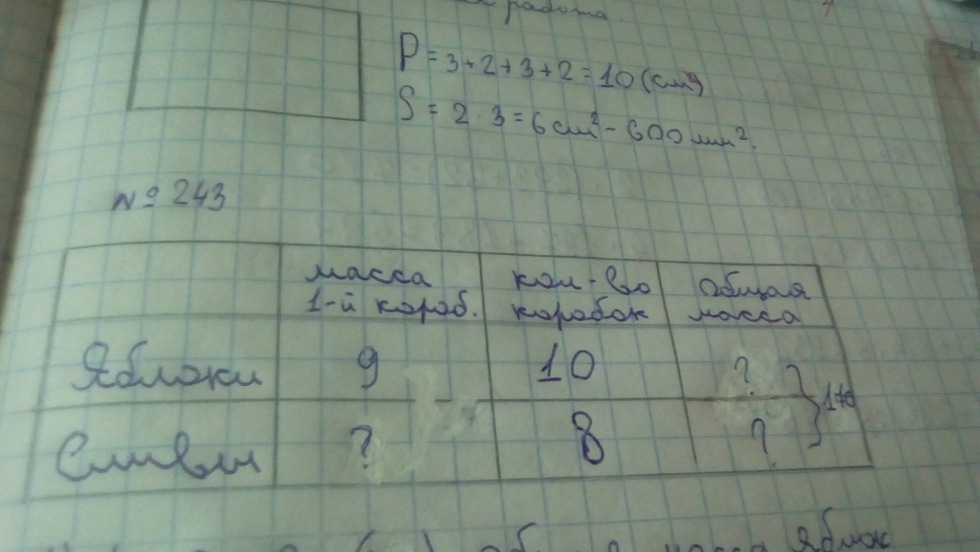 работа.
P = 3+2+3+2=10(см)
S = 2·3=6см² - 600мм².
№ 243
масса 1-й короб.
кол-во коробок
общая масса
Яблоки 9 10 ?
Сливы ? 8 ?
общая масса яблок